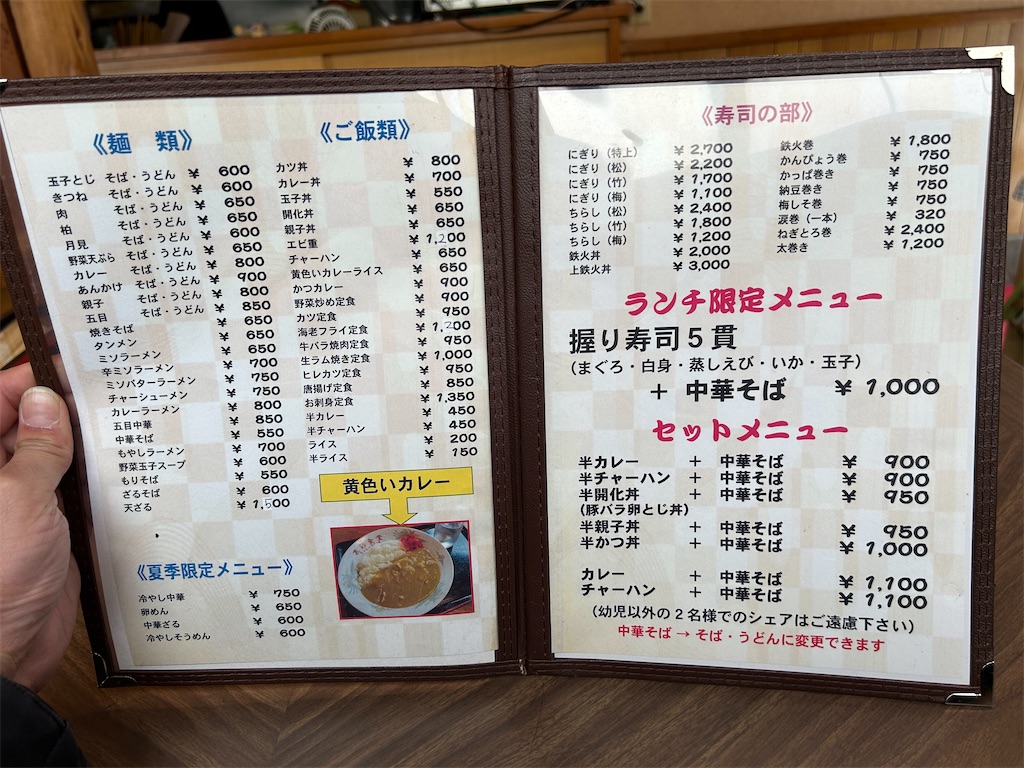 《麺　類》
玉子とじ そば・うどん ¥ 600
きつね そば・うどん ¥ 600
肉 そば・うどん ¥ 650
柏 そば・うどん ¥ 650
月見 そば・うどん ¥ 600
野菜天ぷら そば・うどん ¥ 650
カレー そば・うどん ¥ 800
あんかけ そば・うどん ¥ 900
親子 そば・うどん ¥ 800
五目 そば・うどん ¥ 850
焼きそば ¥ 650
タンメン ¥ 650
ミソラーメン ¥ 650
辛ミソラーメン ¥ 700
ミソバターラーメン ¥ 750
チャーシューメン ¥ 750
カレーラーメン ¥ 800
五目中華 ¥ 850
中華そば ¥ 550
もやしラーメン ¥ 700
野菜玉子スープ ¥ 600
もりそば ¥ 550
ざるそば ¥ 600
天ざる ¥ 1,500
《夏季限定メニュー》
冷やし中華 ¥ 750
卵めん ¥ 650
中華ざる ¥ 600
冷やしそうめん ¥ 600
《ご飯類》
カツ丼 ¥ 800
カレー丼 ¥ 700
玉子丼 ¥ 550
開化丼 ¥ 650
親子丼 ¥ 650
エビ重 ¥ 1,200
チャーハン ¥ 650
黄色いカレーライス ¥ 650
かつカレー ¥ 900
野菜炒め定食 ¥ 900
カツ定食 ¥ 950
海老フライ定食 ¥ 1,200
牛バラ焼肉定食 ¥ 950
生ラム焼き定食 ¥ 1,000
ヒレカツ定食 ¥ 950
唐揚げ定食 ¥ 850
お刺身定食 ¥ 1,350
半カレー ¥ 450
半チャーハン ¥ 450
ライス ¥ 200
半ライス ¥ 150
黄色いカレー
《寿司の部》
にぎり（特上） ¥ 2,700
にぎり（松） ¥ 2,200
にぎり（竹） ¥ 1,700
にぎり（梅） ¥ 1,100
ちらし（松） ¥ 2,400
ちらし（竹） ¥ 1,800
ちらし（梅） ¥ 1,200
鉄火丼 ¥ 2,000
上鉄火丼 ¥ 3,000
鉄火巻 ¥ 1,800
かんぴょう巻 ¥ 750
かっぱ巻き ¥ 750
納豆巻き ¥ 750
梅しそ巻 ¥ 750
涙巻（一本） ¥ 320
ねぎとろ巻 ¥ 2,400
太巻き ¥ 1,200
ランチ限定メニュー
握り寿司５貫
（まぐろ・白身・蒸しえび・いか・玉子）
＋ 中華そば ¥ 1,000
セットメニュー
半カレー ＋ 中華そば ¥ 900
半チャーハン ＋ 中華そば ¥ 900
半開化丼 ＋ 中華そば ¥ 950
（豚バラ卵とじ丼）
半親子丼 ＋ 中華そば ¥ 950
半かつ丼 ＋ 中華そば ¥ 1,000
カレー ＋ 中華そば ¥ 1,100
チャーハン ＋ 中華そば ¥ 1,100
（幼児以外の２名様でのシェアはご遠慮下さい）
中華そば → そば・うどんに変更できます